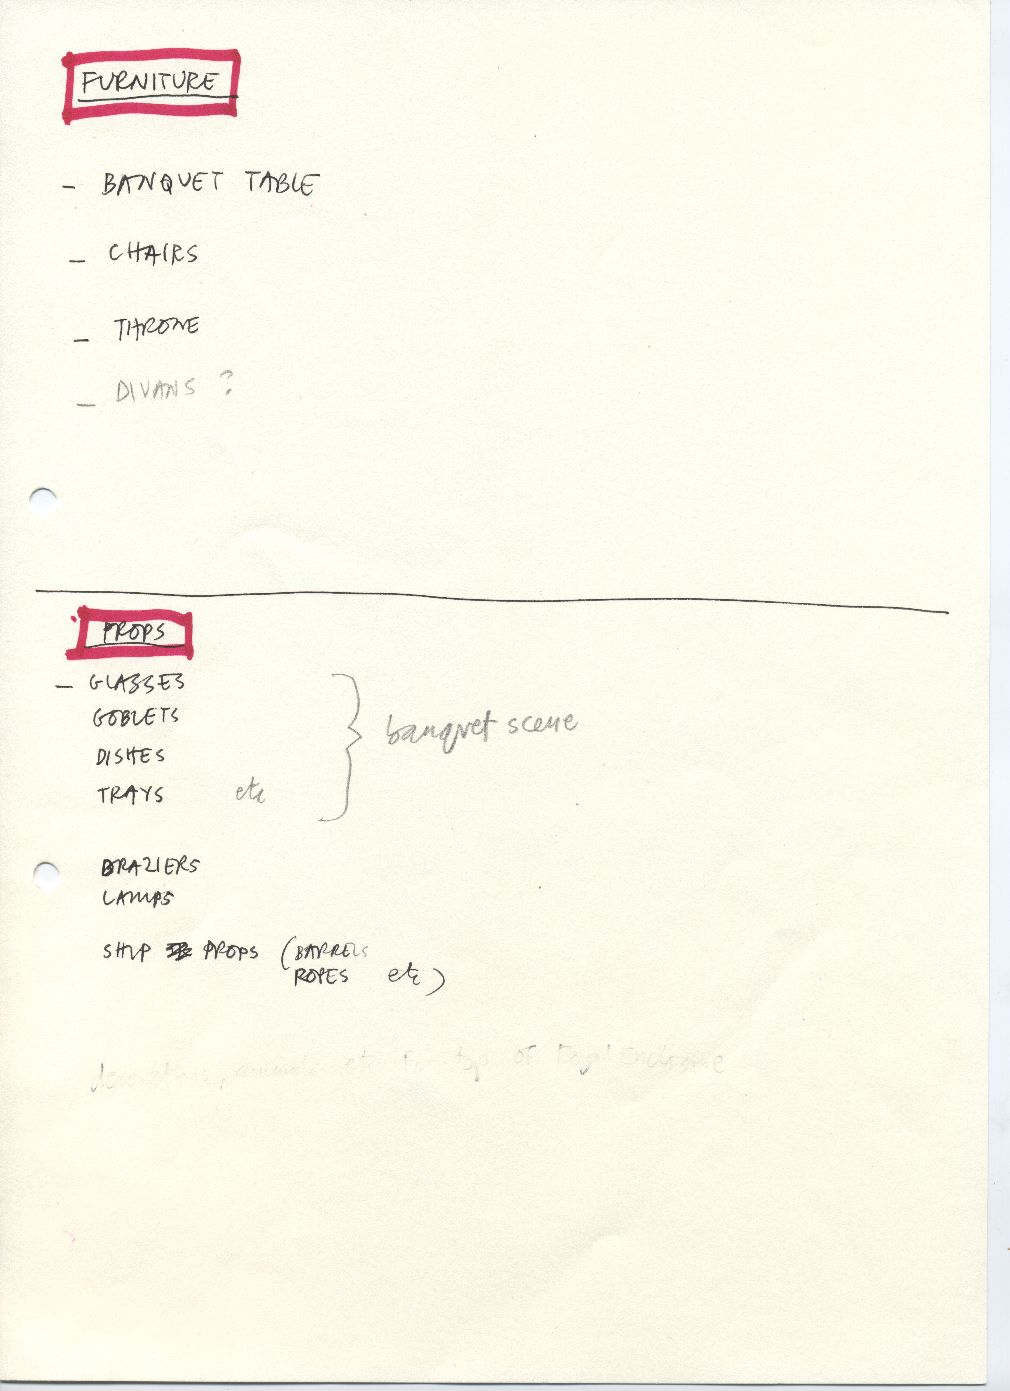 FURNITURE
- BANQUET TABLE
- CHAIRS
- THRONE
- DIVANS ?
PROPS
- GLASSES
GOBLETS
DISHES
TRAYS etc
banquet scene
BRAZIERS
LAMPS
SHIP PROPS (BARRELS
ROPES etc)
etc for top of Royal Enclosure